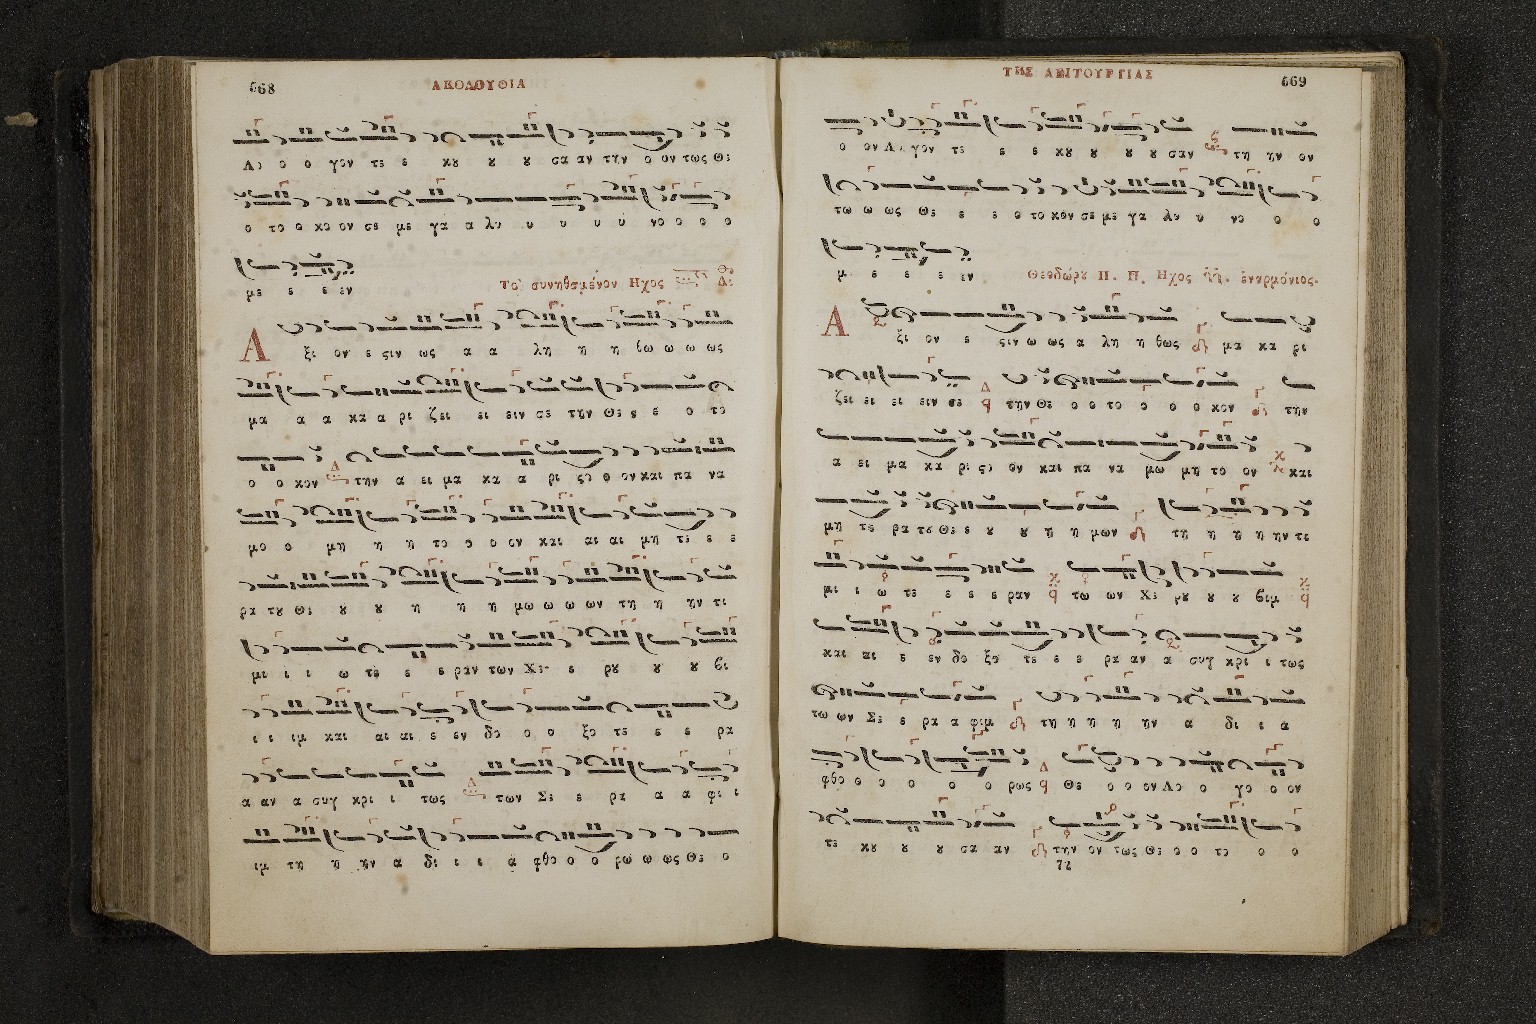 568 ΑΚΟΛΟΥΘΙΑ
Λο ο ο γον τε ε κȣ ȣ ȣ ȣ σα αν την ο ον τως Θε
ο το ο κο ον σε με γα α λυ υ υ υ υ νο ο ο ο
με ε ε εν
Το συνηθσμένον Ηχος
Α ξι ον ε ςιν ως α α λη η η θω ω ω ως
μα α α κα α ρι ζει ει ειν σε την Θε ε ε ο το
ο ο κον την α ει μα κα α ρι ςο ο ον και πα να
μο ο μη η η το ο ο ον και αι αι μη τε ε ε
ρα τȣ Θε ȣ ȣ η η η μω ω ω ων τη η ην τι
μι ι ι ω τε ε ε ραν των Χε ε ρȣ ȣ ȣ βι
ι ι ιμ και αι αι ε εν δο ο ο ξο τε ε ε ρα
α αν α συγ κρι ι τως των Σε ε ρα α α φι ι
ιμ τη η ην α δι ι ι α φθο ο ο ρω ω ως Θε ο
ΤΗΣ ΛΕΙΤΟΥΡΓΙΑΣ 569
ο ον Λο γον τε ε ε κȣ ȣ ȣ ȣ σαν τη ην ον
τω ω ως Θε ε ε ο το κον σε με γα λυ υ νο ο ο
με ε ε ε εν Θεοδώρȣ Π. Π. Ηχος ἐναρμόνιος.
Α ξι ον ε ςιν ω ως α λη η θως μα κα ρι
ζει ει ει ειν σε την Θε ο ο το ο ο ο κον την
α ει μα κα ρι ςο ον και πα να μω μη το ον και
μη τε ρα τȣ Θε ε ȣ ȣ η η μων τη η η η ην τι
μι ι ω τε ε ε ε ραν τω ων Χε ρȣ ȣ ȣ βιμ
και αι ε εν δο ξο τε ε ε ρα αν α συγ κρι ι τως
τω ων Σε ε ρα α φιμ τη η η η ην α δι ι α
φθο ο ο ο ο ο ρως Θε ο ο ον Λο ο γο ο ον
τε κȣ ȣ ȣ σα αν την ον τως Θε ο ο το ο ο
72